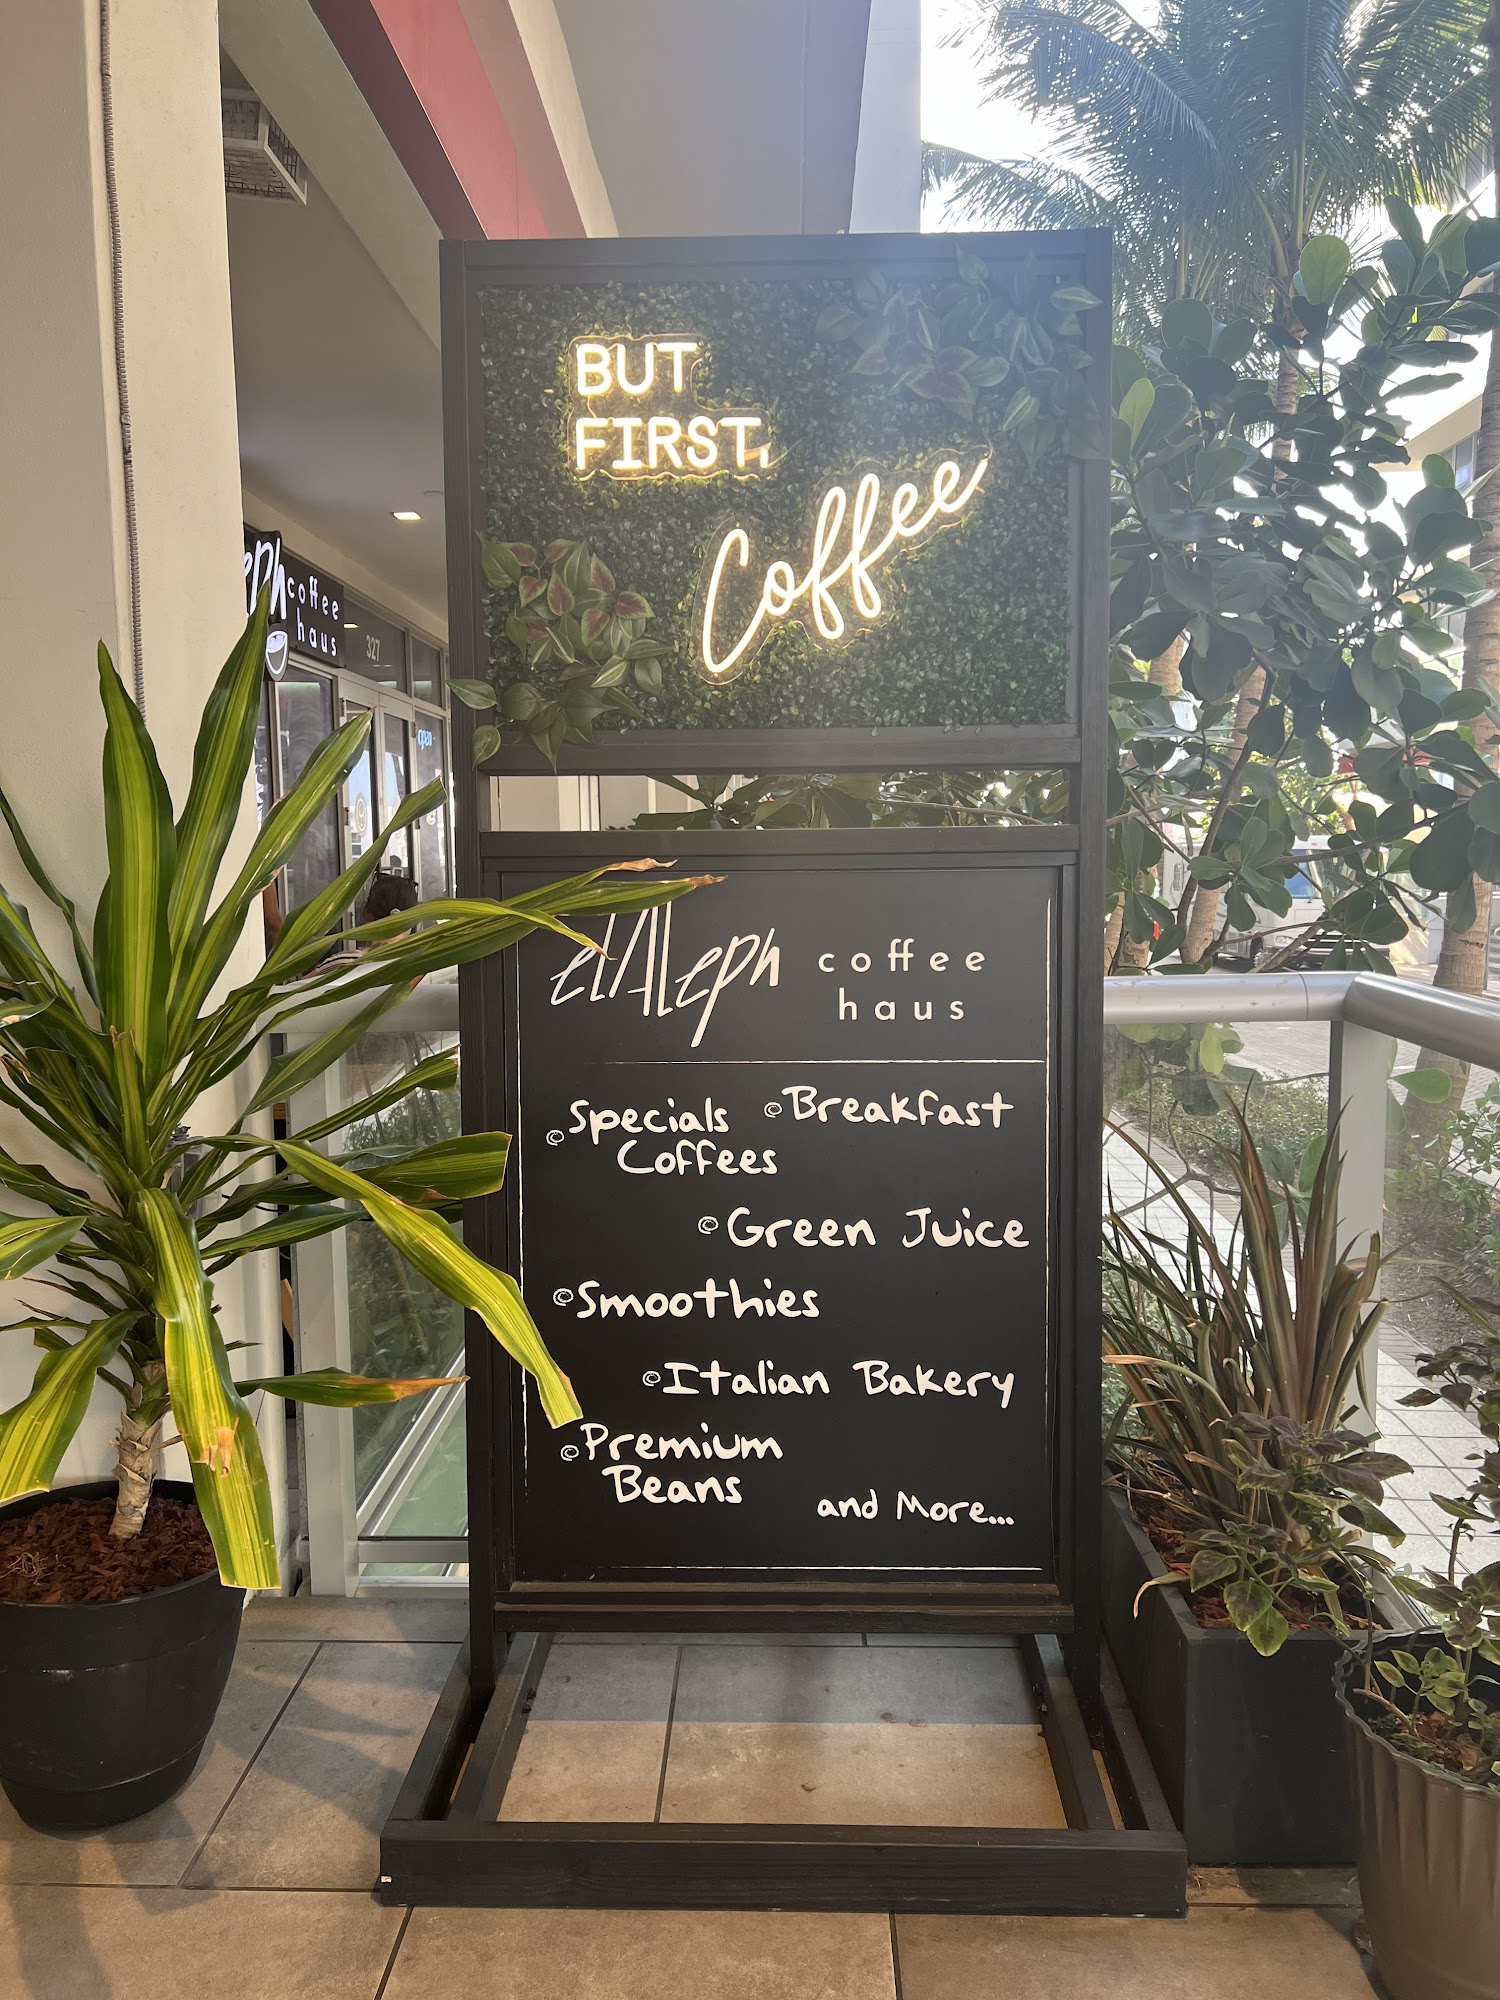 BUT
FIRST,
Coffee
coffee
haus
327
open
elAleph coffee
haus
Specials
Coffees
Breakfast
Green Juice
Smoothies
Italian Bakery
Premium
Beans
and More...